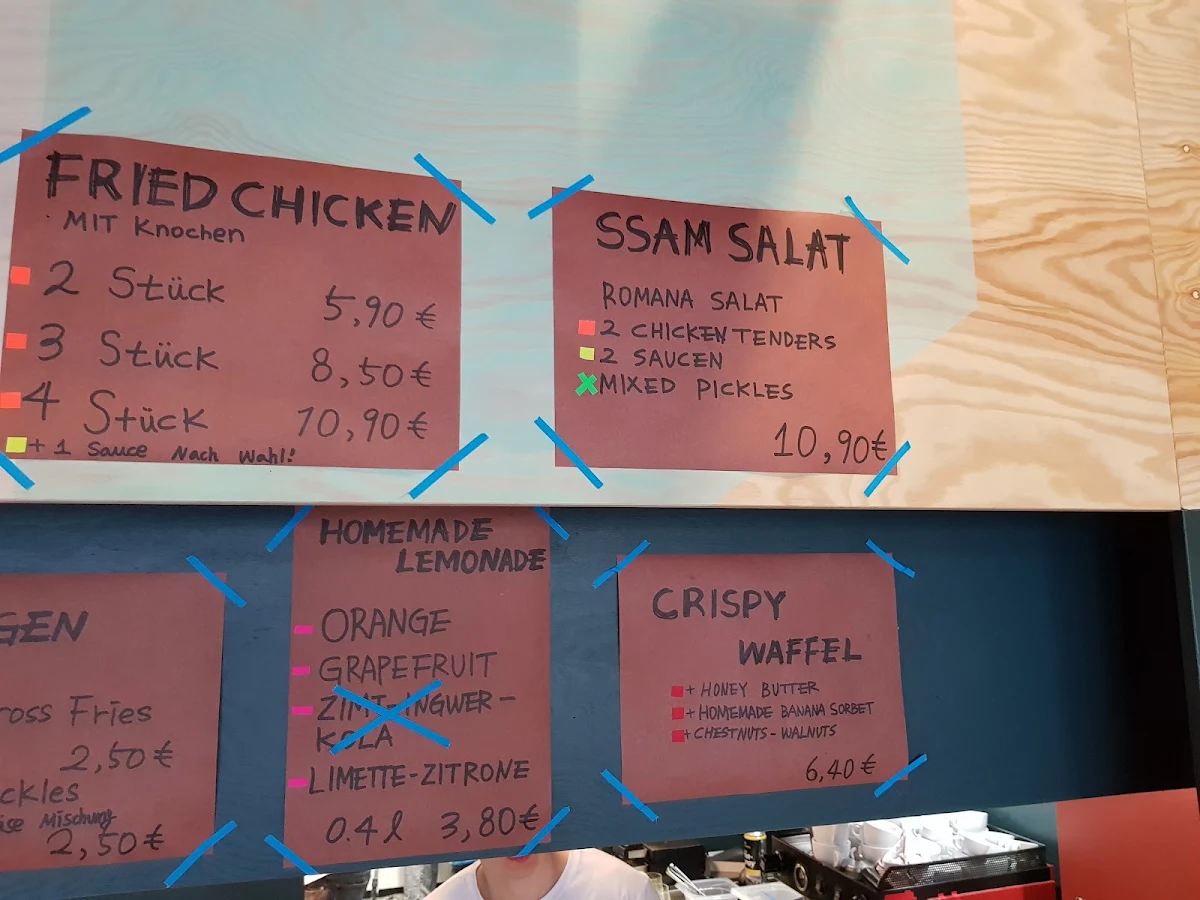 FRIED CHICKEN
MIT Knochen
2 Stück 5,90 €
3 Stück 8,50 €
4 Stück 10,90 €
+ 1 Sauce Nach Wahl!
SSAM SALAT
ROMANA SALAT
2 CHICKEN TENDERS
2 SAUCEN
MIXED PICKLES
10,90€
GEN
ross Fries
2,50 €
ckles
Mischung
2,50 €
HOMEMADE
LEMONADE
ORANGE
GRAPEFRUIT
ZIMT-INGWER-
KOLA
LIMETTE-ZITRONE
0.4l 3,80€
CRISPY
WAFFEL
+ HONEY BUTTER
+ HOMEMADE BANANA SORBET
+ CHESTNUTS - WALNUTS
6,40 €